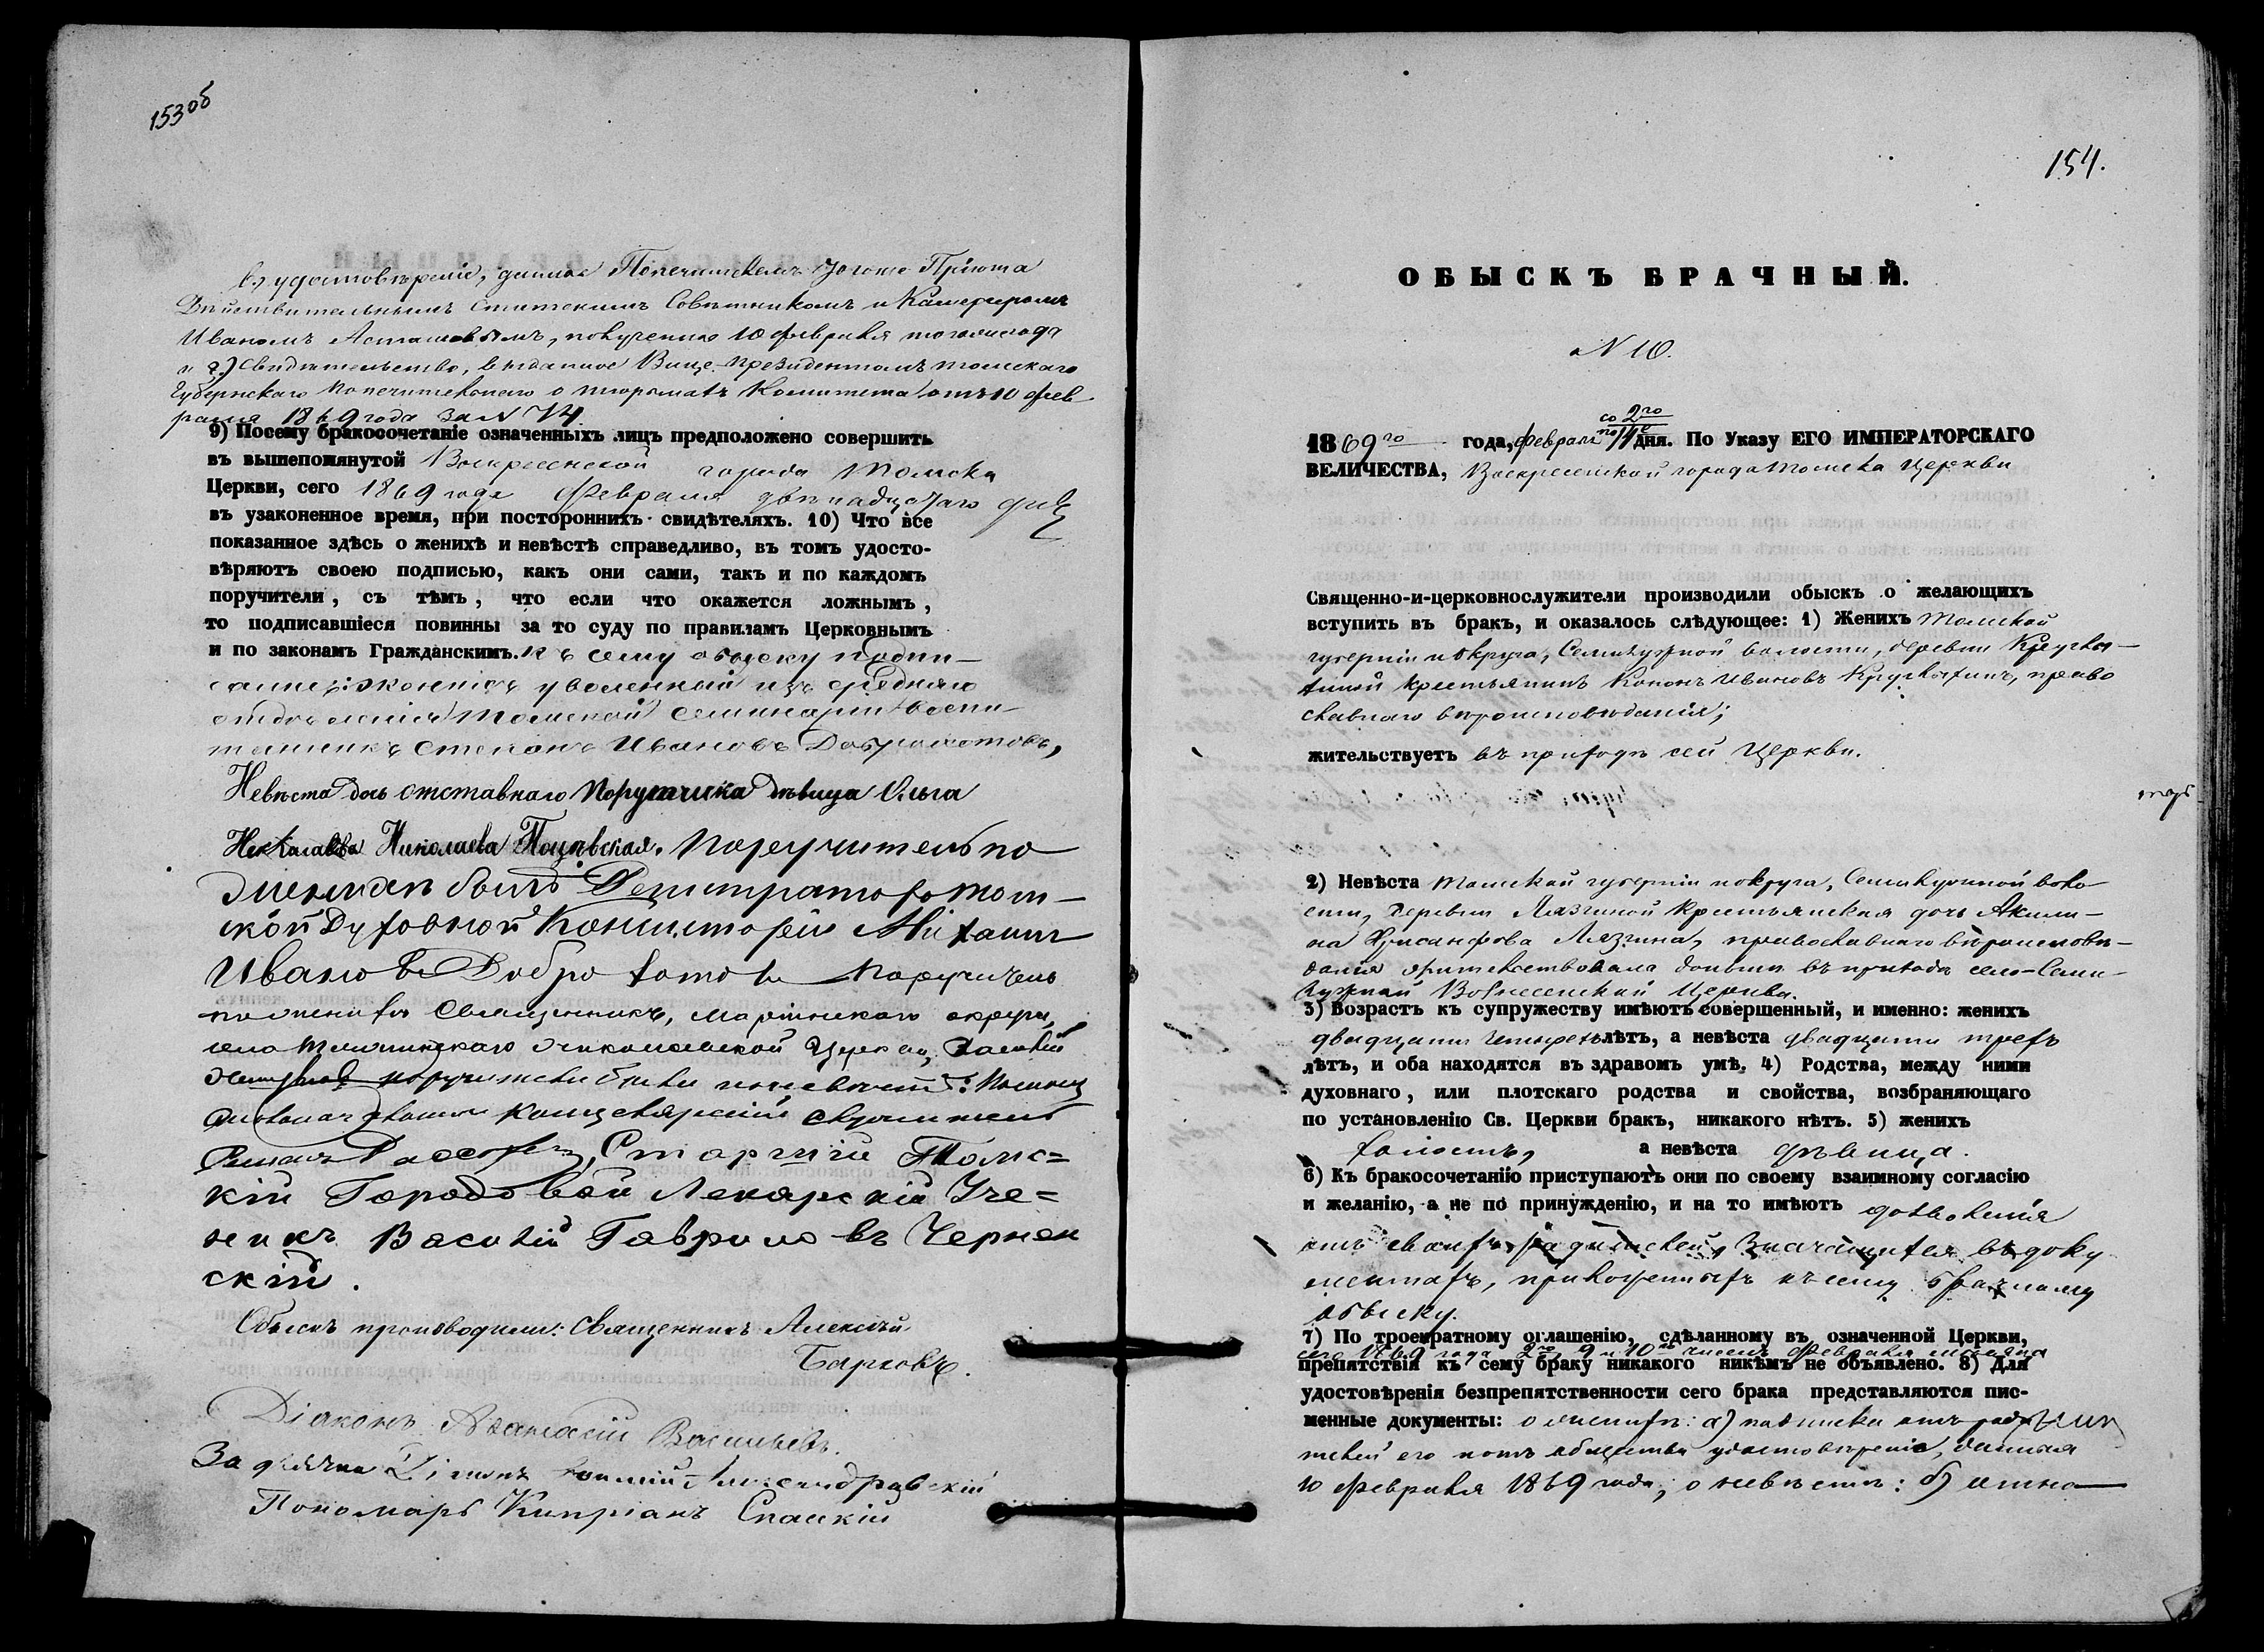 153об
въ удостовѣреніе, данное Попечителемъ того же Пріюта
Дѣйствительнымъ Статскимъ Совѣтникомъ и Камергеромъ
Иваномъ Асташевымъ, полученно 10 февраля того же года
и г.) Свидѣтельство, выданное Вице-президентомъ томскаго
Губернскаго попечительнаго о тюрьмахъ Комитета отъ 10 фев
раля 1869 года за N 74.
9) Посему бракосочетаніе означенныхъ лицъ предположено совершить
въ вышепомянутой Воскресенской города Томска
Церкви, сего 1869 года февраля двѣнадцатаго дня
въ узаконенное время, при постороннихъ свидѣтеляхъ. 10) Что все
показанное здѣсь о женихѣ и невѣстѣ справедливо, въ томъ удосто-
вѣряютъ своею подписью, какъ они сами, такъ и по каждомъ
поручители, съ тѣмъ, что если что окажется ложнымъ,
то подписавшіеся повинны за то суду по правиламъ Церковнымъ
и по законамъ Гражданскимъ. Къ сему обыску подпи-
уволенный изъ средняго
отдѣленія Томской Семинаріи воспи-
танникъ Степанъ Ивановъ Доброхотовъ,
Невѣста дочь отставнаго Порутчика дѣвица Ольга
Николаева Поручитель по
женихѣ былъ Регистраторъ Том-
ской Духовной Консисторіи Михаилъ
Ивановъ Доброхотовъ Поручитель
по женихѣ Священникъ, Маріинскаго округа,
села Николаевской Церкви,
поручители были по невѣстѣ:
канцелярскій служитель
Старшій Томс=
кій Городовой Лекарскій Уче=
никъ Василій Гавриловъ Чернев
скій.
Обыскъ производили: Священникъ Алексѣй
Барковъ.
Діаконъ Аѳанасій Васильевъ.
За дьячка Діаконъ Александровскій
Пономарь Кипріанъ Спасскій
154.
ОБЫСКЪ БРАЧНЫЙ.
N 10.
со 2го
1869го года, февраля по 11е дня. По Указу ЕГО ИМПЕРАТОРСКАГО
ВЕЛИЧЕСТВА, Воскресенской города Томска Церкви
Священно-и-церковнослужители производили обыскъ о желающихъ
вступить въ бракъ, и оказалось слѣдующее: 1) Женихъ Томской
губерніи и округа, Семилужной волости, деревни
крестьянинъ Кононъ Ивановъ право
славнаго вѣроисповѣданія;
жительствуетъ въ приходѣ сей Церкви.
2) Невѣста Томской губерніи и округа, Семилужной воло
сти, деревни Лязгиной крестьянская дочь Акили-
на Хрисанфова Лязгина, православнаго вѣроисповѣ-
данія жительствовала донынѣ въ приходѣ села Семи-
лужной Вознесенской Церкви.
3) Возрастъ къ супружеству имѣютъ совершенный, и именно: женихъ
двадцати четырехъ лѣтъ, а невѣста двадцати трехъ
лѣтъ, и оба находятся въ здравомъ умѣ. 4) Родства, между ними
духовнаго, или плотскаго родства и свойства, возбраняющаго
по установленію Св. Церкви бракъ, никакого нѣтъ. 5) женихъ
холостъ, а невѣста дѣвица.
6) Къ бракосочетанію приступаютъ они по своему взаимному согласію
и желанію, а не по принужденію, и на то имѣютъ дозволенія
отъ своихъ родителей, значащіяся въ доку
ментахъ, приложенныхъ къ сему брачному
обыску.
7) По троекратному оглашенію, сдѣланному въ означенной Церкви,
сего 1869 года 2го, 9 и 10го чиселъ февраля мѣсяца
препятствія къ сему браку никакого никѣмъ не объявлено. 8) Для
удостовѣренія безпрепятственности сего брака представляются пис-
менные документы: о женихѣ: а) подписка отъ роди
телей его и отъ общества удостовѣреніе, данная
10 февраля 1869 года; о невѣстѣ: б)